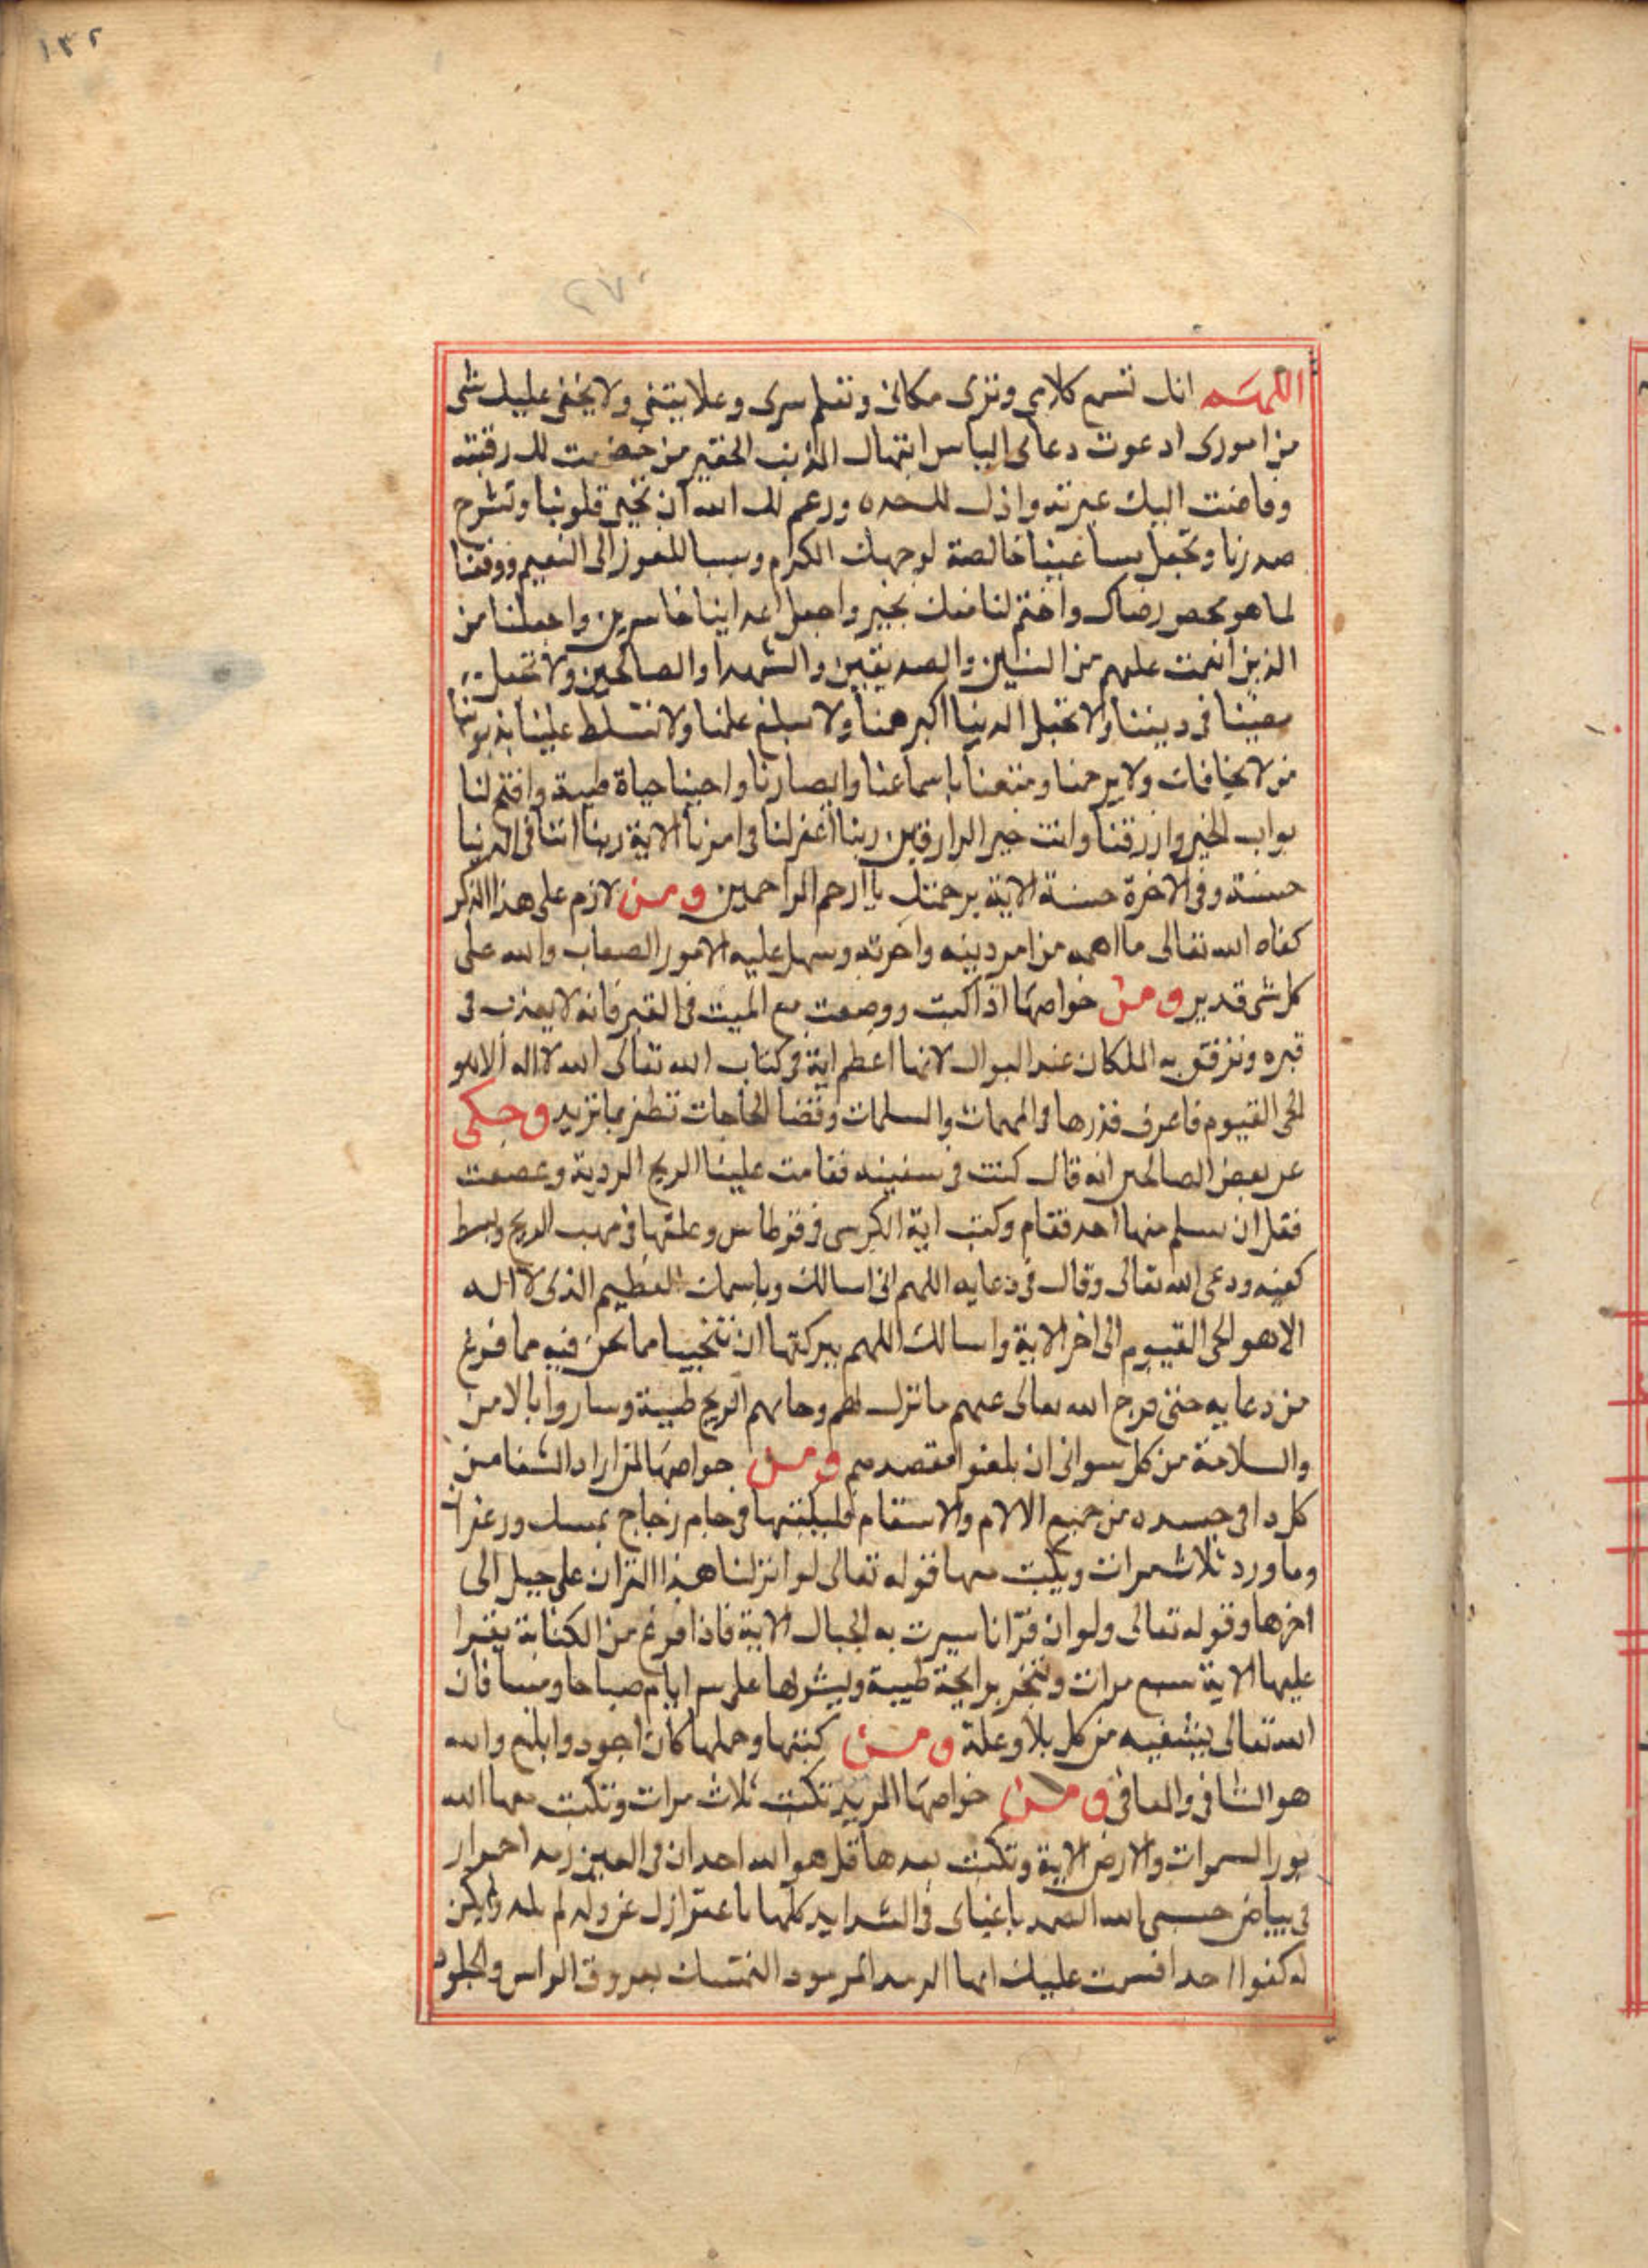 ١٣٢
٢٧٠
اللهم انك تسمع كلامى وترى مكانى وتعلم سرى وعلانيتى ولا يخفى عليك شى
من امورى ادعوت دعا البايس ابتهال المذنب الحقير من خضعت لك رقبته
وفاضت اليك عبرته واذل لك خده ورغم لك انفه ان تحيى قلوبنا وتشرح
صدرنا وتجعل خالصة لوجهك الكرام وسببا للفوز الى النعيم ووفقنا
لما هو محصور رضاك واختم لنا منك بخير واجعل اعداينا خاسرين واجعلنا من
الذين انعمت عليهم من النبيين والصديقين والشهدا والصالحين ولا تجعل
مصيبتنا فى ديننا ولا تجعل الدنيا اكبر همنا ولا مبلغ علمنا ولا تسلط علينا بذنوبنا
من لا يخافك ولا يرحمنا ومتعنا باسماعنا وابصارنا واحينا حياة طيبة وافتح لنا
بواب الخير وارزقنا وانت خير الرازقين ربنا اغفر لنا فى امرنا الاية ربنا اتنا فى الدنيا
حسنة وفى الاخرة حسنة الاية برحمتك يا ارحم الراحمين ومن لازم على هذا الذكر
كفاه الله تعالى ما اهمه من امر دينه واخرته وسهل عليه الامور الصعاب والله على
كل شى قدير ومن خواصها اذا كتبت ووضعت مع الميت فى القبر فانه لا يعذب فى
قبره وترفق به الملكان عند السوال لانها اعظم اية فى كتاب الله تعالى الله لا اله الا هو
الحى القيوم فاعرف قدرها فى المهمات والسلمات وقضا الحاجات تظفر بما تريد وحكى
عن بعض الصالحين انه قال كنت فى سفينه فقامت علينا الريح الردية وعصفت
فقل ان يسلم منها احد فقام وكتب اية الكرسى فى قرطاس وعلقها فى مهب الريح وبسط
كفيه ودعى الله تعالى وقال فى دعايه اللهم انى اسالك وباسمك العظيم الذى لا اله
الا هو الحى القيوم الى اخر الاية واسالك اللهم ببركتها ان تنجينا مما نحن فيه مما فرغ
من دعايه حتى فرج الله تعالى عنهم ما نزل بهم وجاتهم الريح طيبة وساروا بالامن
والسلامة من كل سوالى ان بلغوا مقصدهم ومن خواصها لمن اراد الشفا من
كل دا فى جسده من جميع الالام والاسقام فليكتبها فى جام زجاج بمسك وزعفران
وماورد ثلاث مرات ويكتب معها قوله تعالى لو انزلنا هذا القران على جبل الى
اخرها وقوله تعالى ولو ان قرانا سيرت به الجبال الاية فاذا فرغ من الكتابة يقرا
عليها الاية سبع مرات ويبخر برايحة طيبة ويشربها على ايام صباحا ومسا فان
الله تعالى يشفيه من كل بلا وعلة ومن كتبها وحملها كان اجود وابلغ والله
هو الشافى والمعافى ومن خواصها الرمد تكتب ثلاث مرات وتكتب معها الله
نور السموات والارض الاية وتكتب بعدها قل هو الله احد ان فى العين رمد احمرار
فى بياض حسبى الله الصمد يا غياثى فى الشدايد كلها لم يلد ولم يكن
له كفوا احد اقسمت عليك ايها الرمد المرمود بعروق الراس والجلود